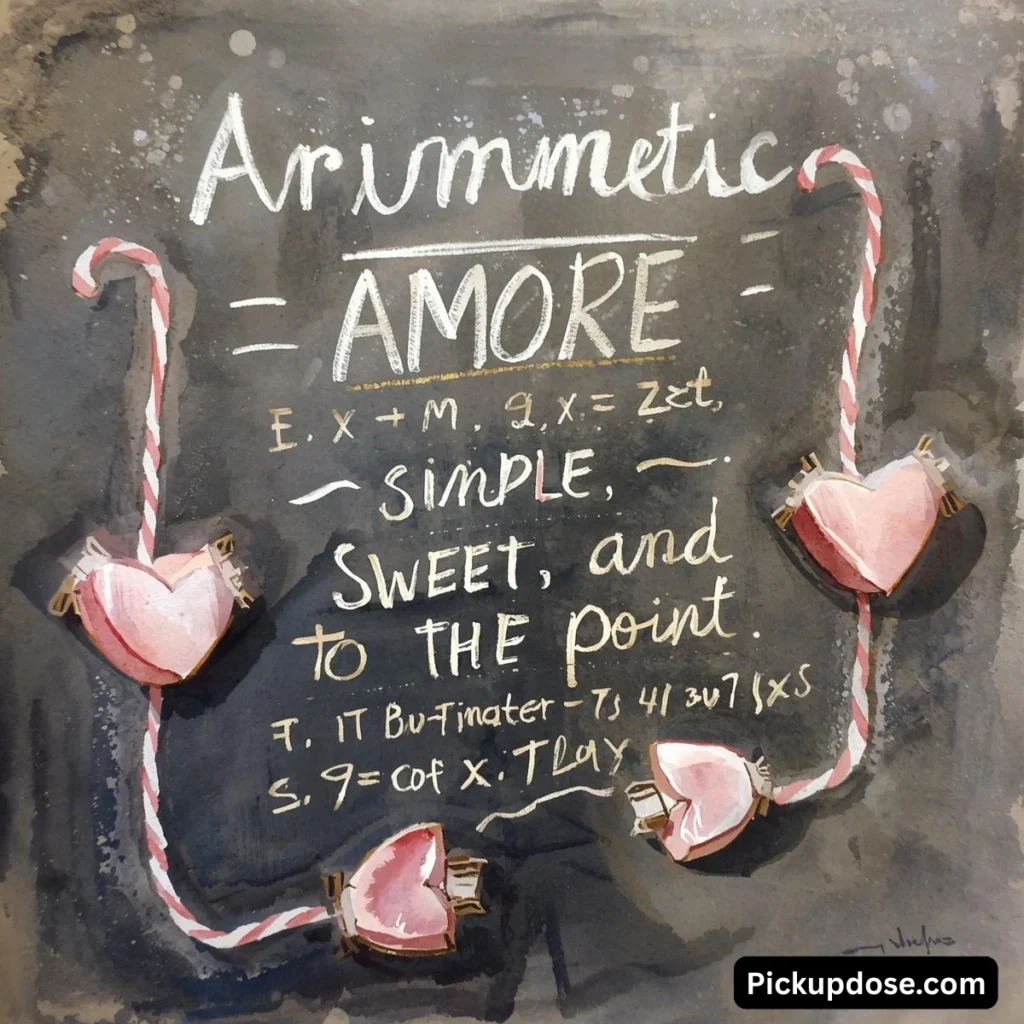 Arimmetic
= AMORE =
E. x + M. 2, x = Zet,
~ SIMPLE, ~.
SWEET, and
TO THE point.
T. IT Bu-Tinater - 7s 41 3u7 xs
S. 9 = cof x. T
Pickupdose.com